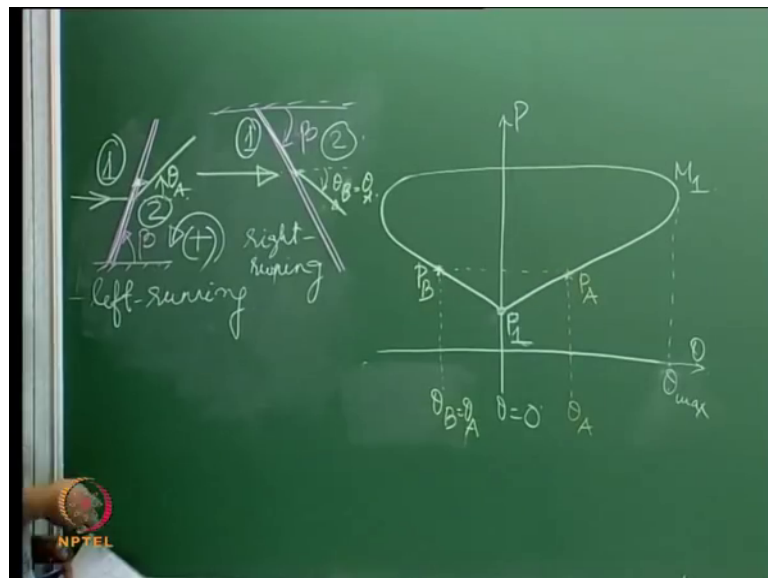 ① β ②
θ_A
② β (+)
left-running
① β ②
θ_B = θ_A
right-running
P
M_1
P_B P_A
P_1
θ
θ_B = θ_A θ = 0 θ_A θ_max
NPTEL